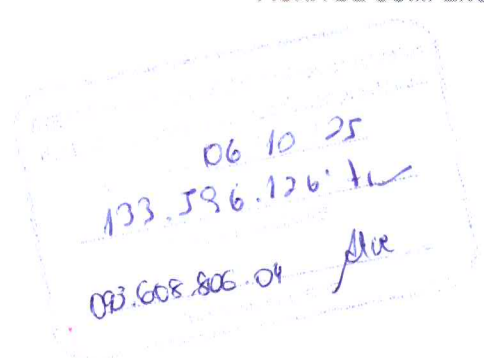 06 10 25
133.596.126.
093.608.806.04